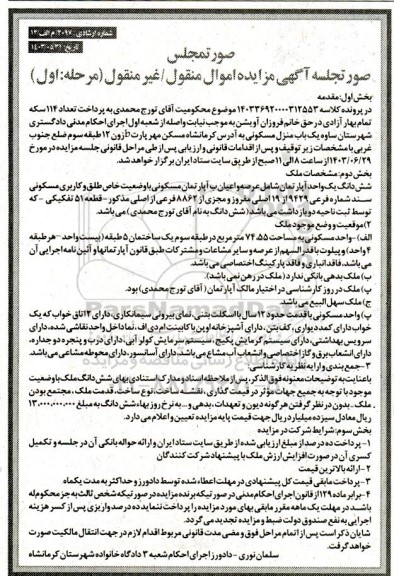 شماره ارشادی: ۲۰۹۷/ م الف ۱۲
تاریخ: ۱۴۰۳/۰۵/۳۱
صورتمجلس
صورتجلسه آگهی مزایده اموال منقول/غیرمنقول (مرحله: اول)
بخش اول: مقدمه
در پرونده کلاسه ۱۴۰۳۳۶۹۲۰۰۰۰۳۱۲۵۵۳ موضوع محکومیت آقای تورج محمدی به پرداخت تعداد ۱۱۴ سکه
تمام بهار آزادی در حق خانم فروزان آویشن به موجب نیابت واصله از شعبه اول اجرای احکام مدنی دادگستری
شهرستان ساوه یک باب منزل مسکونی به آدرس کرمانشاه مسکن مهر پارت b زون ۱۲ طبقه سوم ضلع جنوب
غربی با مشخصات زیر توقیف و پس از اقدامات قانونی و ارزیابی پس از طی مراحل قانونی جلسه مزایده در مورخ
۱۴۰۳/۰۶/۲۹ از ساعت ۸ الی ۱۱ صبح از طریق سایت ستاد ایران برگزار خواهد شد.
بخش دوم: مشخصات ملک
شش دانگ یک واحد آپارتمان شامل عرصه و اعیان با آپارتمان مسکونی با وضعیت خاص طلق و کاربری مسکونی
سند شماره فرعی ۹۴۲۹ از ۱۹ اصلی مفروز و مجزی از ۸۸۶۲ فرعی از اصلی مذکور - قطعه ۵۱ تفکیکی - که
توسط ثبت ناحیه دو بازداشت می باشد (شش دانگ به نام آقای تورج محمدی) می باشد.
۲) موقعیت و وضع موجود ملک
الف) - واحد مسکونی به مساحت ۷۴.۵۵ مترمربع در طبقه سوم یک ساختمان ۵ طبقه (بیست واحد - هر طبقه
۴ واحد) و پیلوت با قدرالسهم از عرصه و سایر مشاعات و مشترکات طبق قانون آپارتمانها و آئین نامه اجرایی آن
می باشد. فاقد انباری و فاقد پارکینگ اختصاصی می باشد.
ب) ملک بدهی بانکی ندارد (ملک در رهن نمی باشد).
پ) ملک در روز کارشناسی در اختیار مالک آپارتمان (آقای تورج محمدی) بود.
ج) ملک سهل البیع می باشد.
پ) واحد مسکونی با قدمت حدود ۱۲ سال با اسکلت بتنی، نمای بیرونی سیمانکاری، دارای ۲ اتاق خواب که یک
خواب دارای کمد دیواری، کف بتن، دارای آشپزخانه اوپن با کابینت ام دی اف، نما داخل واحد نقاشی شده، دارای
سرویس بهداشتی، دارای سیستم گرمایش پکیج، سیستم سرمایش کولر آبی، دارای درب و پنجره دو جداره،
دارای انشعاب برق و گاز اختصاصی و انشعاب آب مشاع می باشد. دارای آسانسور، دارای محوطه مشاعی می باشد.
۳- جمع بندی و ارایه نظریه کارشناسی:
با عنایت به توضیحات معنونه فوق الذکر، پس از ملاحظه اسناد و مدارک استنادی بهای شش دانگ ملک با وضعیت
موجود با توجه به جمیع جهات موثر در قیمت گذاری، نقشه، مساحت، نوع ساخت، قدمت ملک، مجتمع بودن
ملک، بدون در نظر گرفتن هر گونه دیون و تعهدات، بدهی و... به نرخ روز بهاء شش دانگ به مبلغ ۱۳,۰۰۰,۰۰۰,۰۰۰
ریال معادل سیزده میلیارد ریال جهت قیمت پایه مزایده تعیین و اعلام می دارد.
بخش سوم: شرایط شرکت در مزایده
۱- پرداخت ده درصد از مبلغ ارزیابی شده از طریق سایت ستاد ایران و ارائه حواله بانکی آن در جلسه و تکمیل
کسری آن در صورت افزایش ارزش ملک با پیشنهاد شرکت کنندگان
۲- ارائه بالاترین قیمت
۳- پرداخت مابقی قیمت کل پیشنهادی در مهلت اعطاء شده توسط دادورز و حداکثر به مدت یکماه
۴- برابر ماده ۱۲۹ از قانون اجرای احکام مدنی در صورتیکه برنده مزایده در صورتیکه شخص ثالث به جز محکوم له
باشد در مهلت یک ماهه مقرر مابقی بهای مورد مزایده را پرداخت ننماید ده درصد واریزی پس از کسر هزینه
اجرایی به نفع صندوق دولت ضبط و مزایده تجدید می گردد.
شایان ذکر است پس از اتمام مراحل فوق و مضی مدت قانونی مربوط اقدام لازم در جهت انتقال مالکیت صورت
خواهد گرفت.
سلمان نوری - دادورز اجرای احکام شعبه ۳ دادگاه خانواده شهرستان کرمانشاه